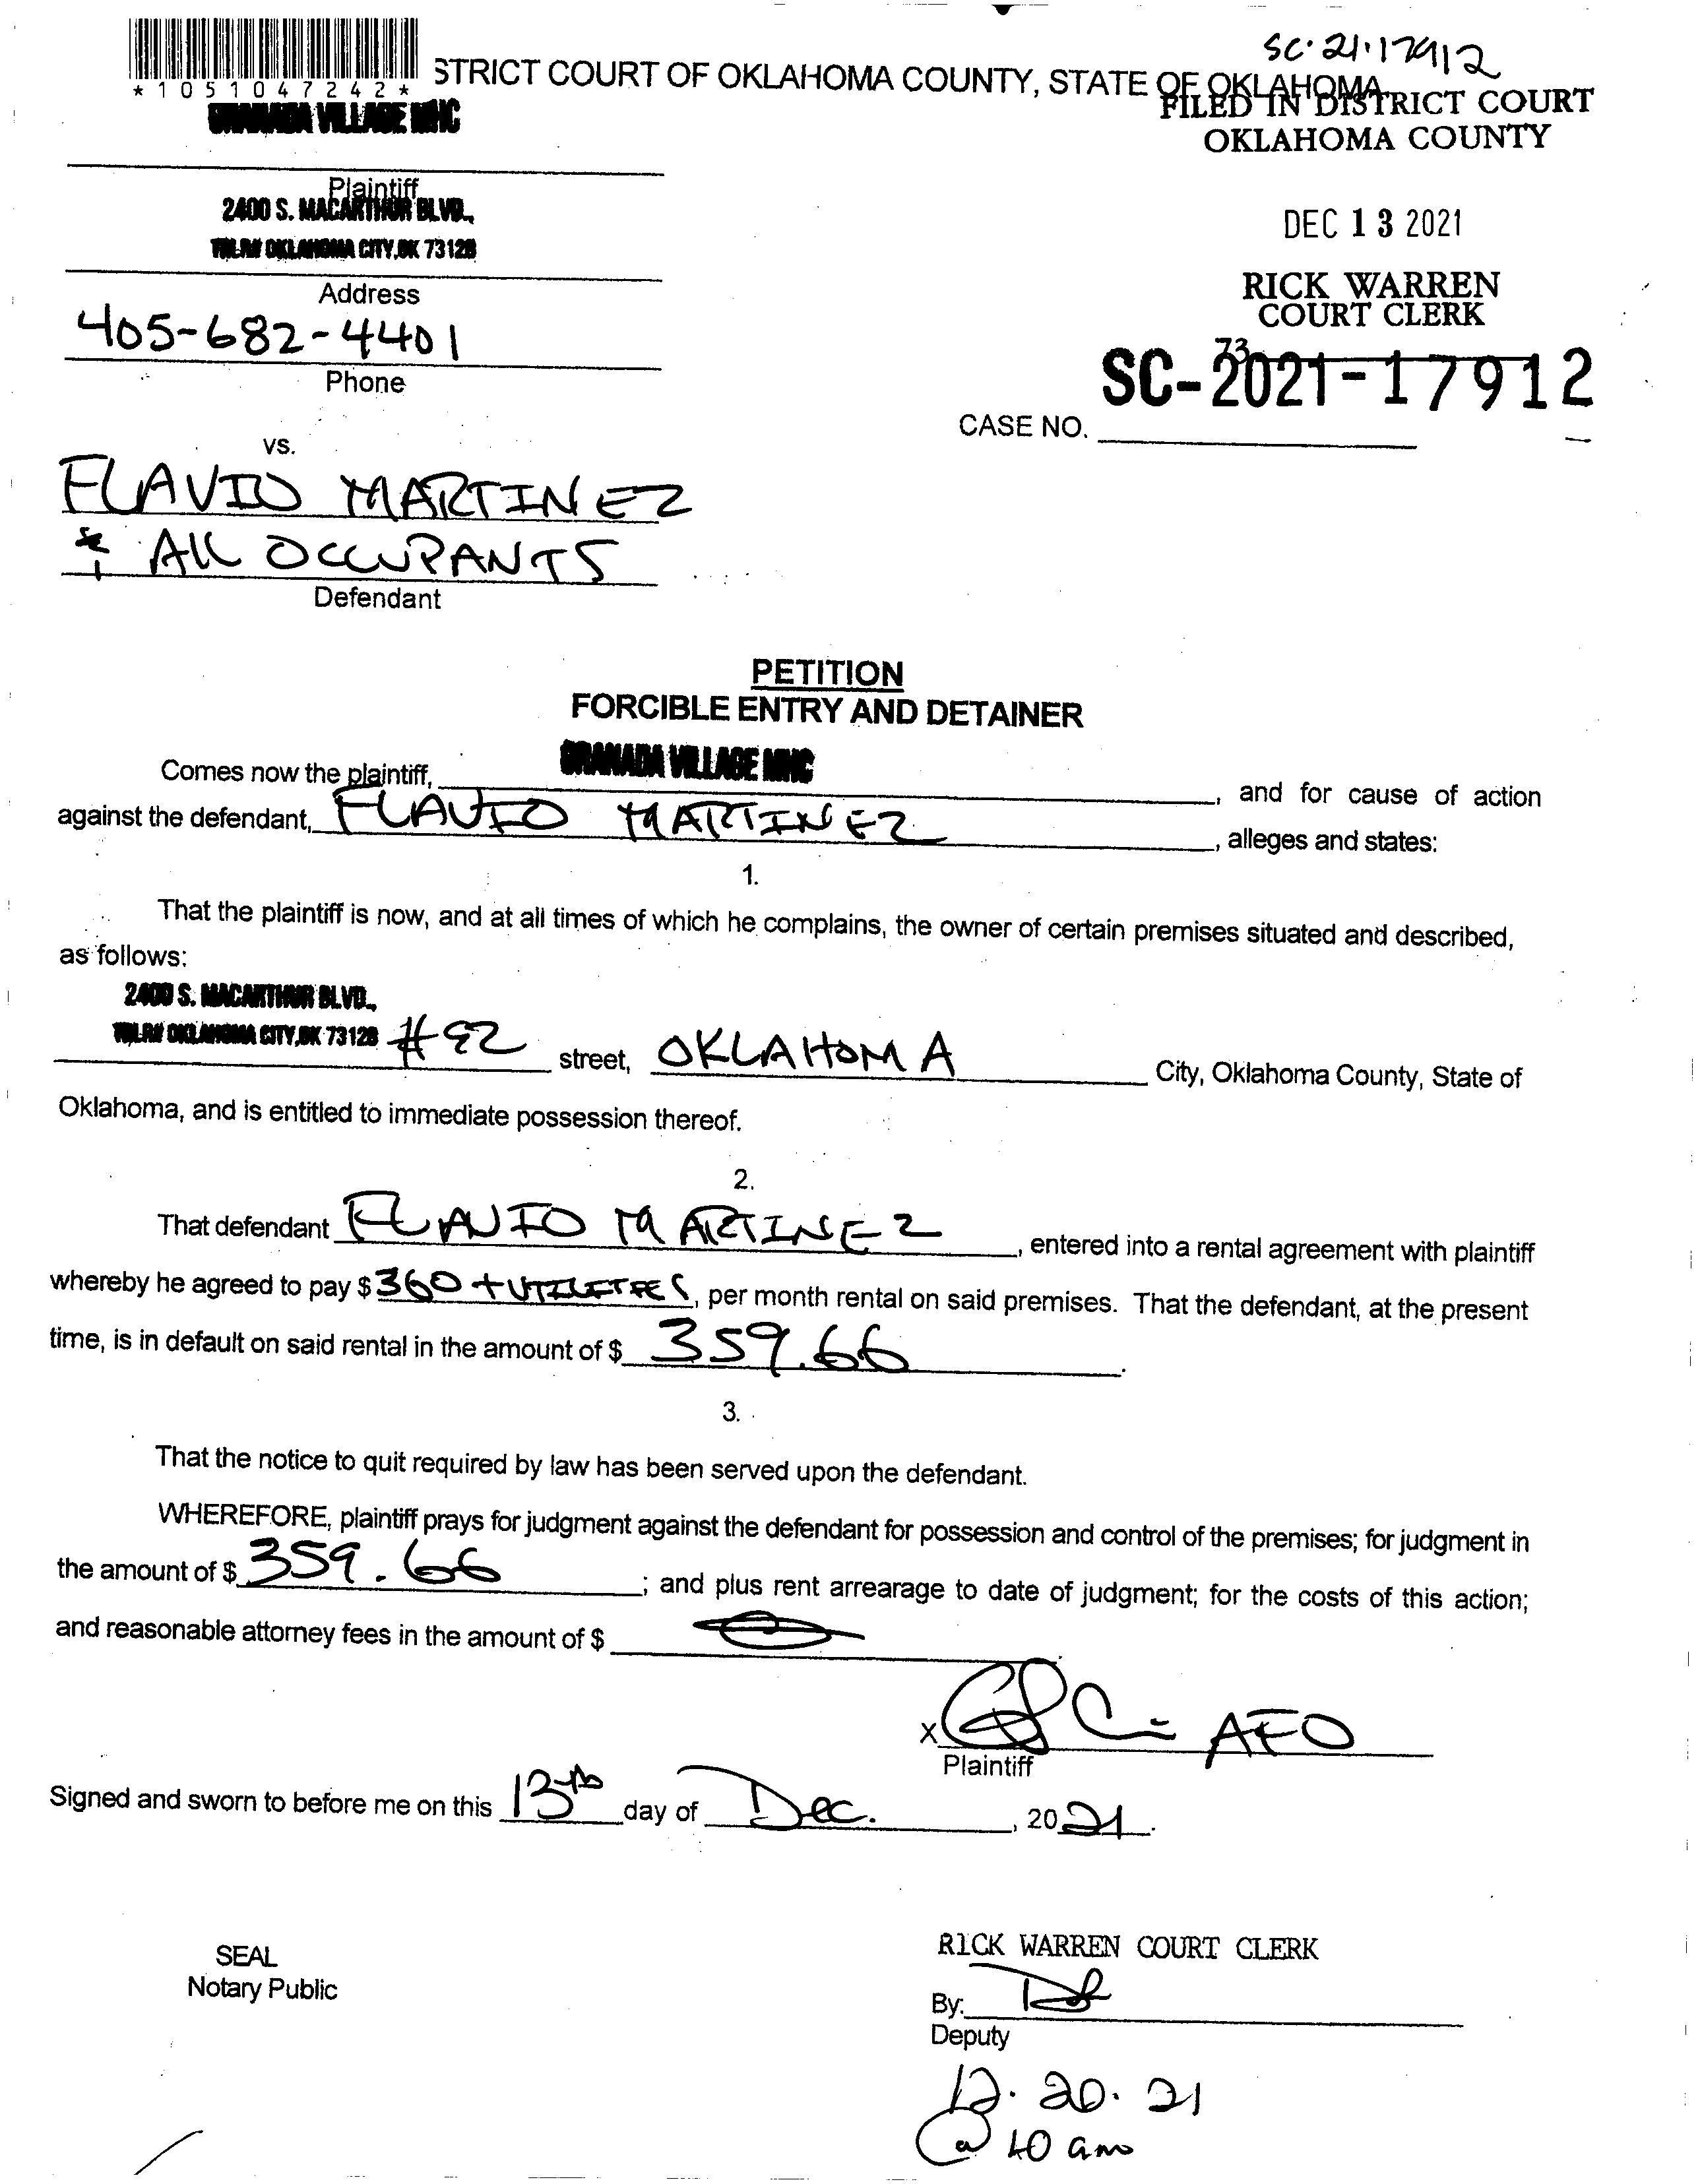 SC·21·17912
STRICT COURT OF OKLAHOMA COUNTY, STATE OF OKLAHOMA
*1051047242*
FILED IN DISTRICT COURT
OKLAHOMA COUNTY
GRANADA VILLAGE MHC
Plaintiff
2400 S. MACARTHUR BLVD.,
OKLAHOMA CITY, OK 73128
Address
405-682-4401
Phone
DEC 13 2021
RICK WARREN
COURT CLERK
73
SC-2021-17912
CASE NO.
vs.
FLAVIO MARTINEZ
& All OCCUPANTS
Defendant
PETITION
FORCIBLE ENTRY AND DETAINER
Comes now the plaintiff, GRANADA VILLAGE MHC, and for cause of action
against the defendant, FLAVIO MARTINEZ, alleges and states:
1.
That the plaintiff is now, and at all times of which he complains, the owner of certain premises situated and described,
as follows:
2400 S. MACARTHUR BLVD.,
OKLAHOMA CITY, OK 73128 #92 street, OKLAHOMA City, Oklahoma County, State of
Oklahoma, and is entitled to immediate possession thereof.
2.
That defendant FLAVIO MARTINEZ, entered into a rental agreement with plaintiff
whereby he agreed to pay $ 360 + UTILITIES, per month rental on said premises. That the defendant, at the present
time, is in default on said rental in the amount of $ 359.66.
3.
That the notice to quit required by law has been served upon the defendant.
WHEREFORE, plaintiff prays for judgment against the defendant for possession and control of the premises; for judgment in
the amount of $ 359.66; and plus rent arrearage to date of judgment; for the costs of this action;
and reasonable attorney fees in the amount of $
X AFO
Plaintiff
Signed and sworn to before me on this 13th day of Dec., 2021.
SEAL
Notary Public
RICK WARREN COURT CLERK
By:
Deputy
12·20·21
@ 10 am